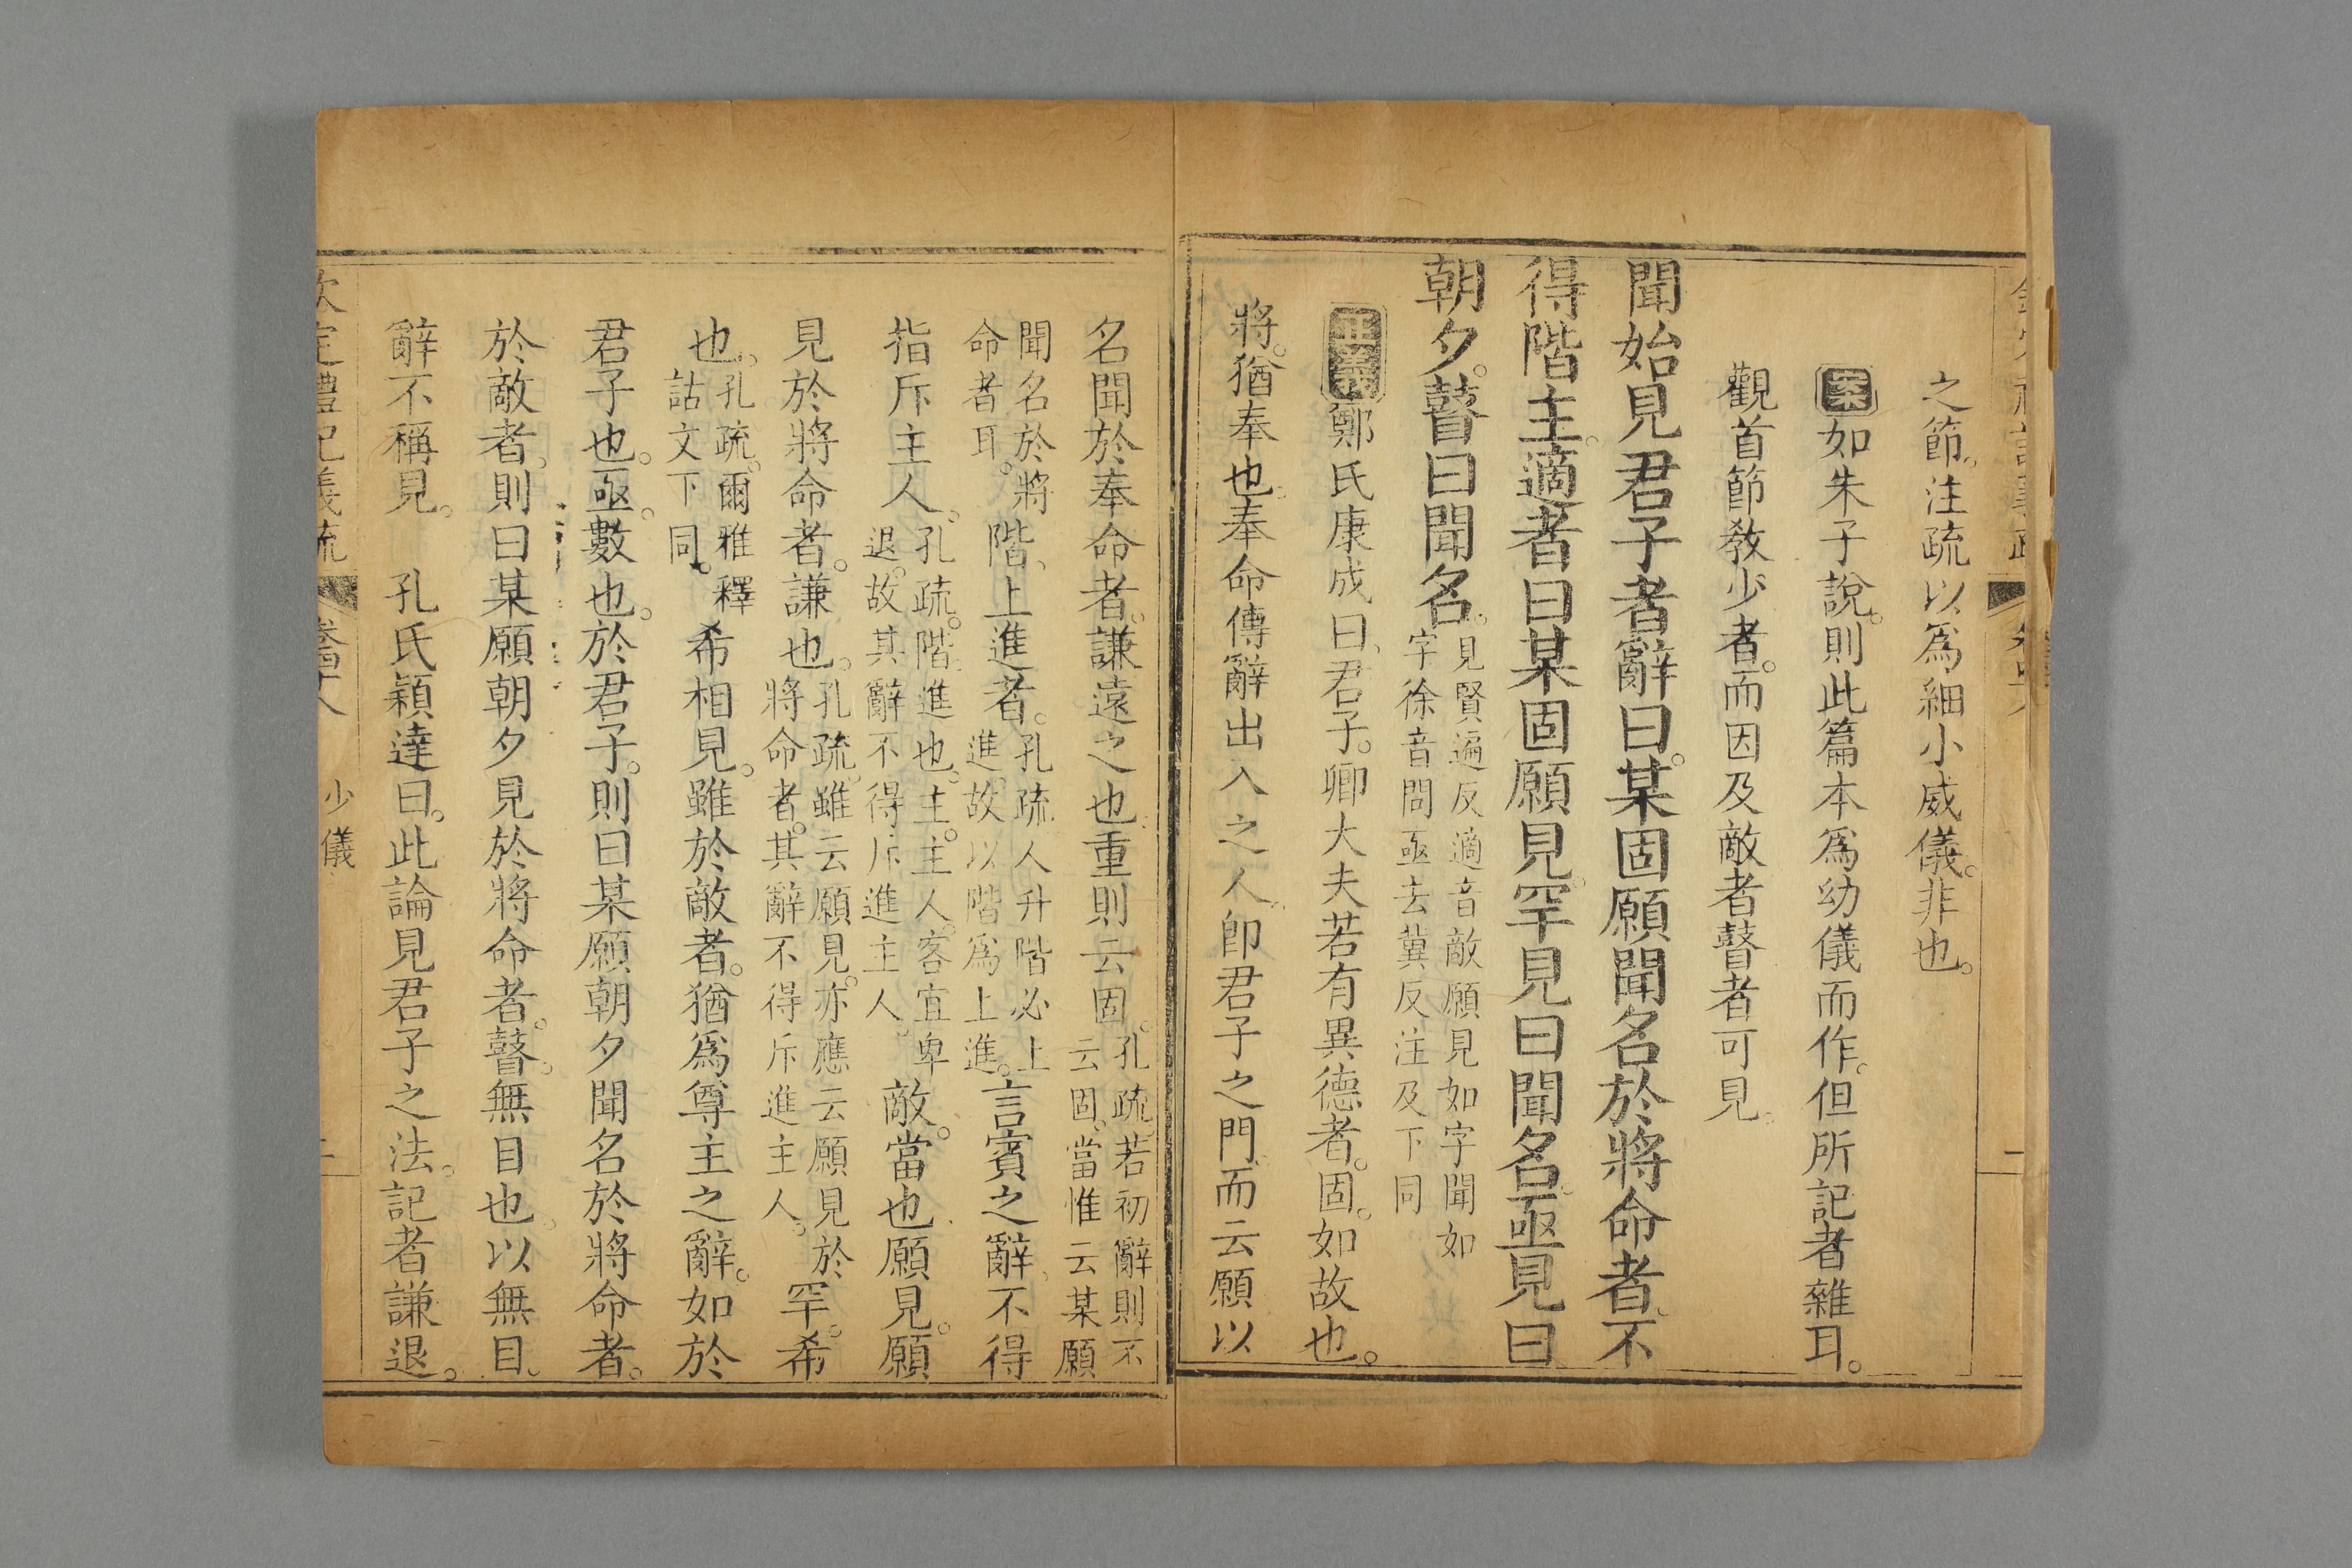 之節。注疏以爲細小威儀。非也。
案如朱子說。則此篇本爲幼儀而作。但所記者雜耳。
觀首節敎少者。而因及敵者瞽者可見。
聞始見君子者辭曰。某固願聞名於將命者。不
得階主。適者曰某固願見。罕見曰聞名。亟見曰
朝夕。瞽曰聞名。
見賢遍反適音敵願見如字聞如
字徐音問亟去冀反注及下同
正義鄭氏康成曰、君子。卿大夫若有異德者。固。如故也。
將。猶奉也。奉命傳辭出入之人。卽君子之門。而云願以
名聞於奉命者。謙遠之也。重則云固。
孔疏。若初辭則不
云固。當惟云某願
聞名於將
命者耳。
階、上進者。
孔疏人升階必上
進。故以階爲上進。
言賓之辭、不得
指斥主人。
孔疏。階進也。主。主人。客宜卑
退。故其辭不得斥進主人。
敵。當也。願見。願
見於將命者。謙也。
孔疏。雖云願見。亦應云願見於
將命者。其辭不得斥進主人。
罕。希
也。
孔疏。爾雅釋
詁文下同。
希相見。雖於敵者。猶爲尊主之辭。如於
君子也。亟。數也。於君子。則曰某願朝夕聞名於將命者。
於敵者、則曰某願朝夕見於將命者。瞽。無目也。以無目。
辭不稱見。 孔氏穎達曰。此論見君子之法。記者謙退。
欽定禮記義疏
少儀